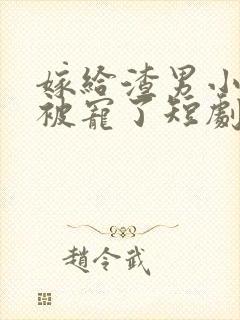 嫁給渣男小
被寵了短劇
趙令武